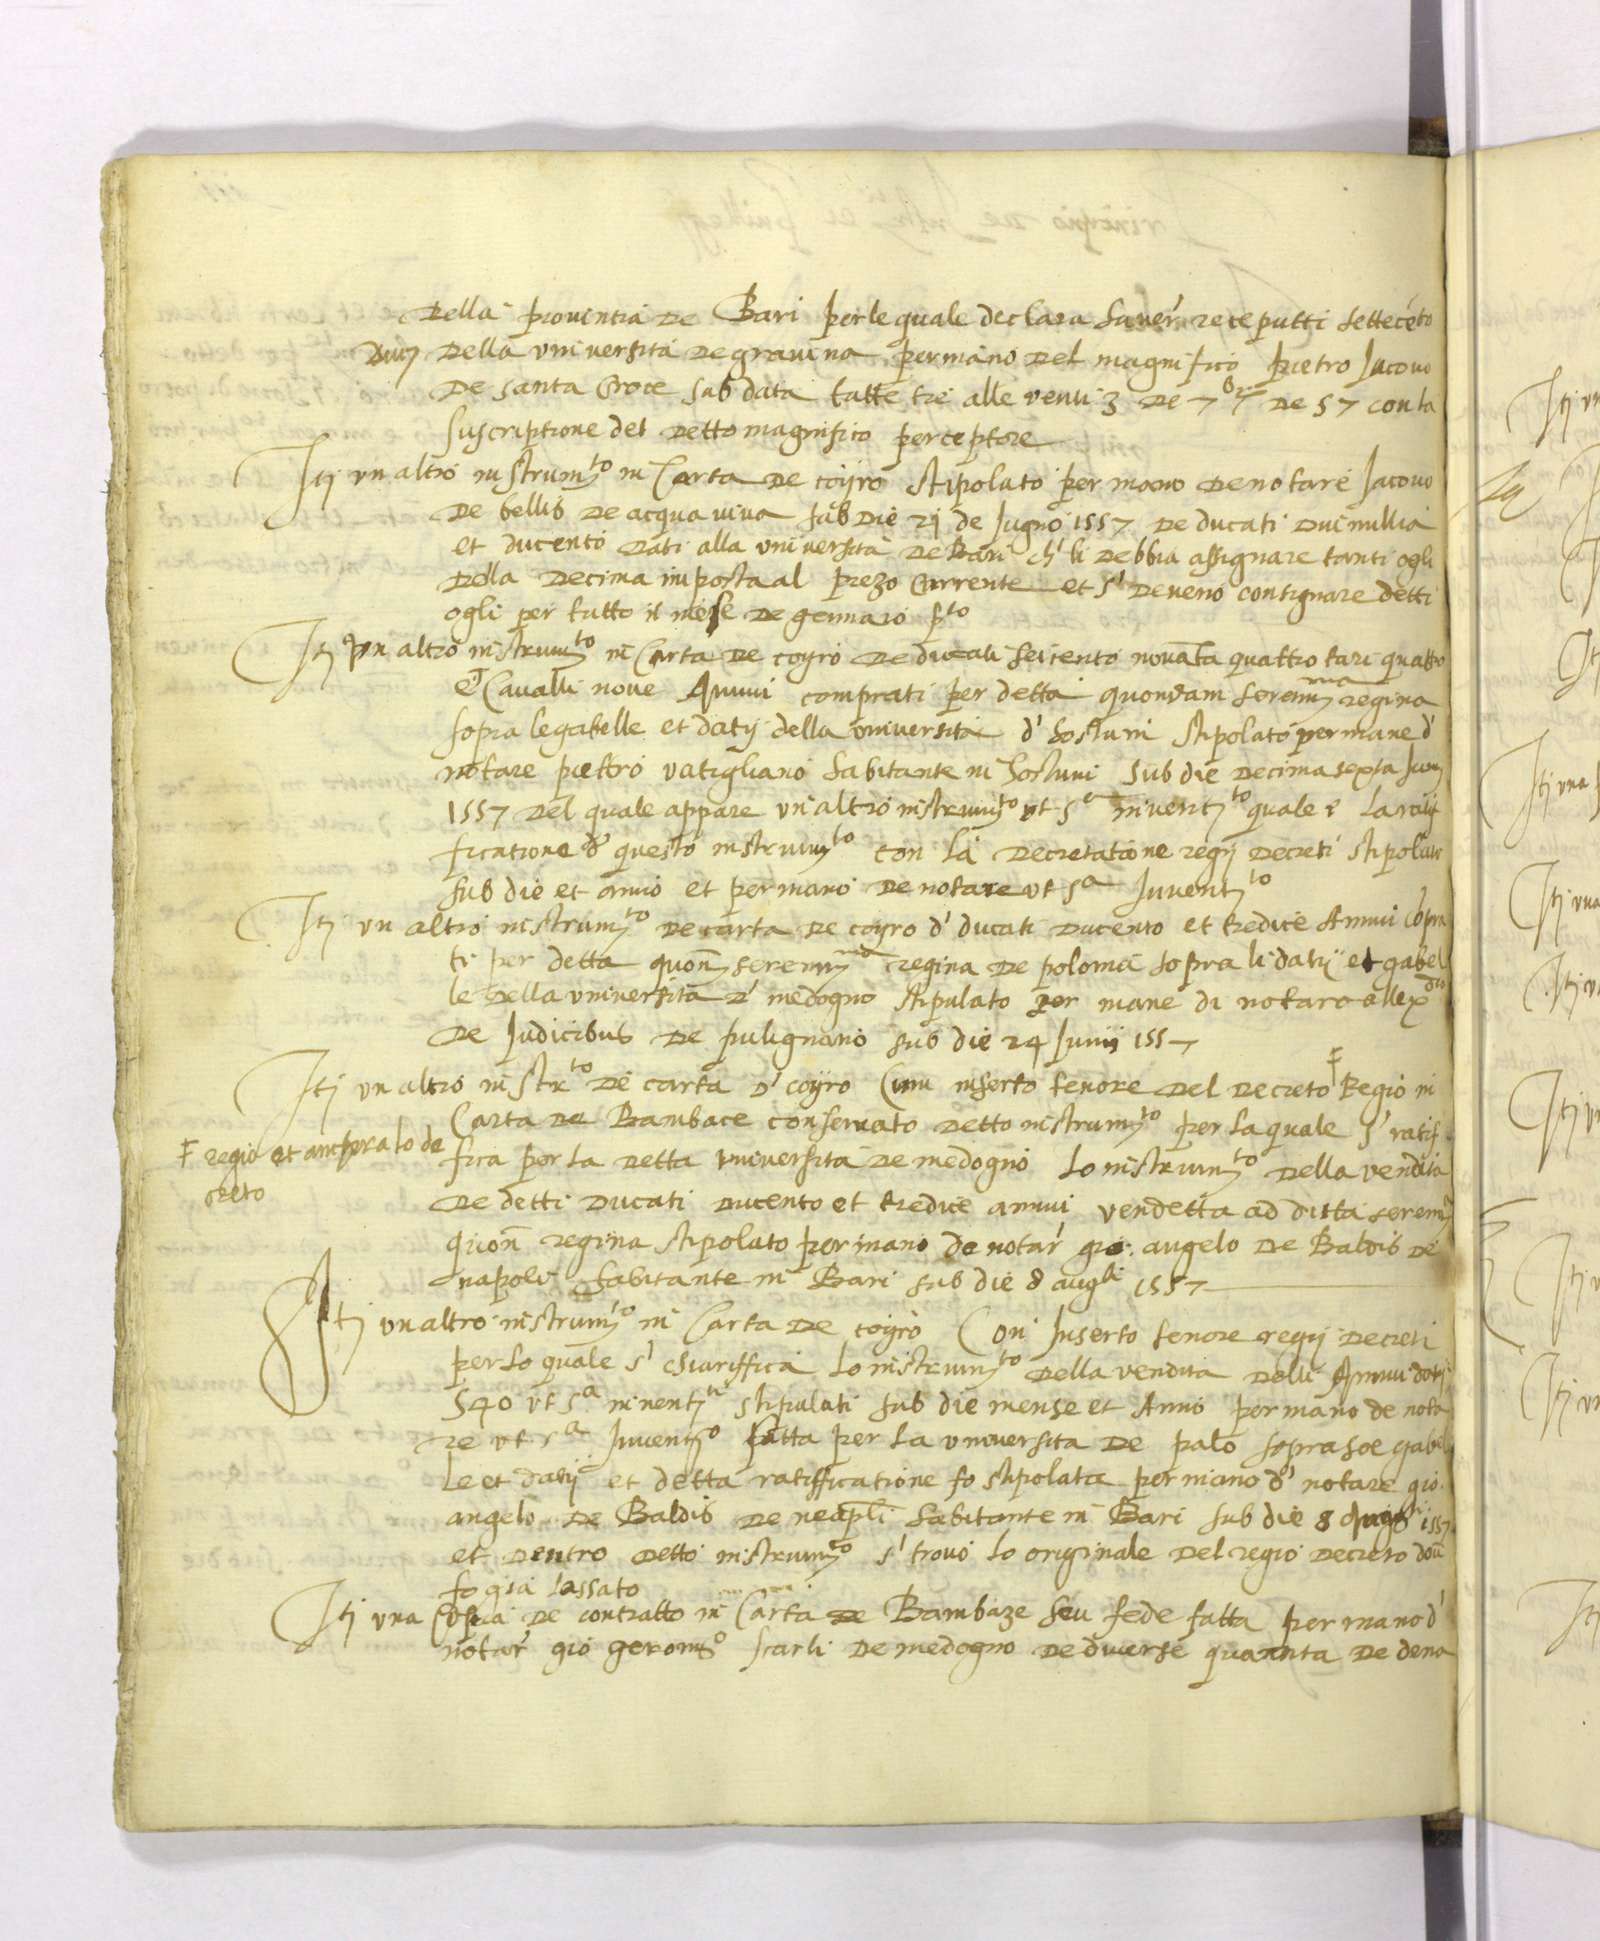 della provintia de Bari per le quale declara haver' receputti settecēto
duc. della università de gravina per mano del magnifico pietro Jacovo
de santa Croce sub data fatte tre alle venti 3 de 7bre de 57 con la
suscriptione del detto magnifico perceptore
Itē un altro instrumto in Carta de coyro stipolato per mano de notare Jacovo
de bellis de acquaviva sub die 21 de Jugno 1557 de ducati duimillia
et ducento dati alla università de Bari ch' li debbia assignare tanti ogli
della decima imposta al prezo Currente et s' deveno consignare detti
ogli per tutto il mese de gennaro pto
Itē un altro instrumto in Carta de coyro de ducati seicento novāta quattro tarì quattro
et Cavalli nove Annui comprati per detta quondam serenma regina
sopra le gabelle et datij della università d' hostuni stipolato per mane d'
notare pietro vatigliano habitante in hostuni sub die decima sexta Junij
1557 del quale appare un altro instrumto ut sa inventto quale è la ratif
ficatione d' questo instrumto con la decretatione regij decreti stipolato
sub die et anno et per mano de notare ut sa Inventto
Itē un altro instrumto de carta de coyro d' ducati ducento et tredice Annui cōpra
ti per detta quonm serenma regina de polonia sopra li datij et gabel
le della università d' medogno stipulato per mane di notaro allexdro
de Judicibus de pulignano sub die 24 Junij 1557
Itē un altro instrto de carta d' coyro Cum inserto tenore del decreto Ŧ Regio in
Carta de Bambace conservato detto instrumto per la quale s' ratif
Ŧ regio et anchora lo de
creto
fica per la detta università de medogno lo instrumto della vendita
de detti ducati ducento et tredice annui vendetta ad ditta serenma
quon regina stipolato per mano de notar' gio. angelo de Baldis de
napoli habitante in Bari sub die 8 augti 1557
Itē un altro instrumto in Carta de coyro Con Inserto tenore regij decreti
per lo quale s' chiariffica lo instrumto della vendita delli Annui doti
540 ut sa inventto stipulati sub die mense et Anno per mano de nota
re ut sa Inventto fatta per la università de palo sopra soe gabel
le et datij et detta ratifficatione fo stipolata per mano d' notare gio.
angelo de Baldis de neapli habitante in Bari sub die 8 Augti 1557
et dentro detto instrumto s' trovò lo originale del regio decreto doue
fo gia lassato
Itē una Copia de contratto in Carta de Bambaze seu fede fatta per mano d'
notar' gio geronmo scarli de medogno de diverse quantita de dena